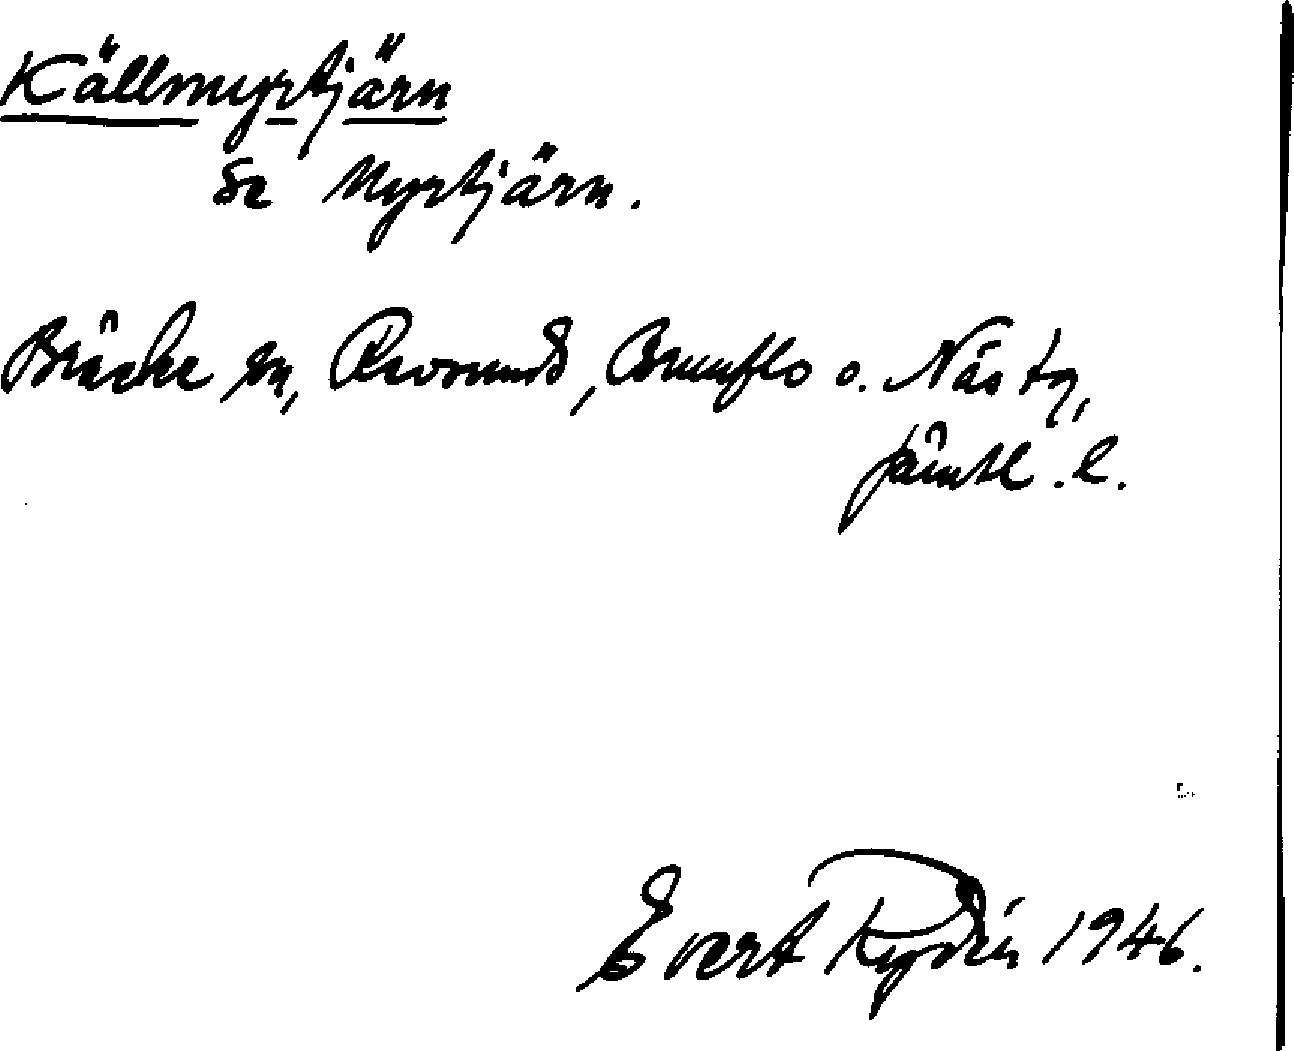 Källmyrtjärn
Se Myrtjärn.
Bräcke sn, Revsunds, Brunflo o. Näs tg,
Jämtl. l.
Evert Rydén 1946.